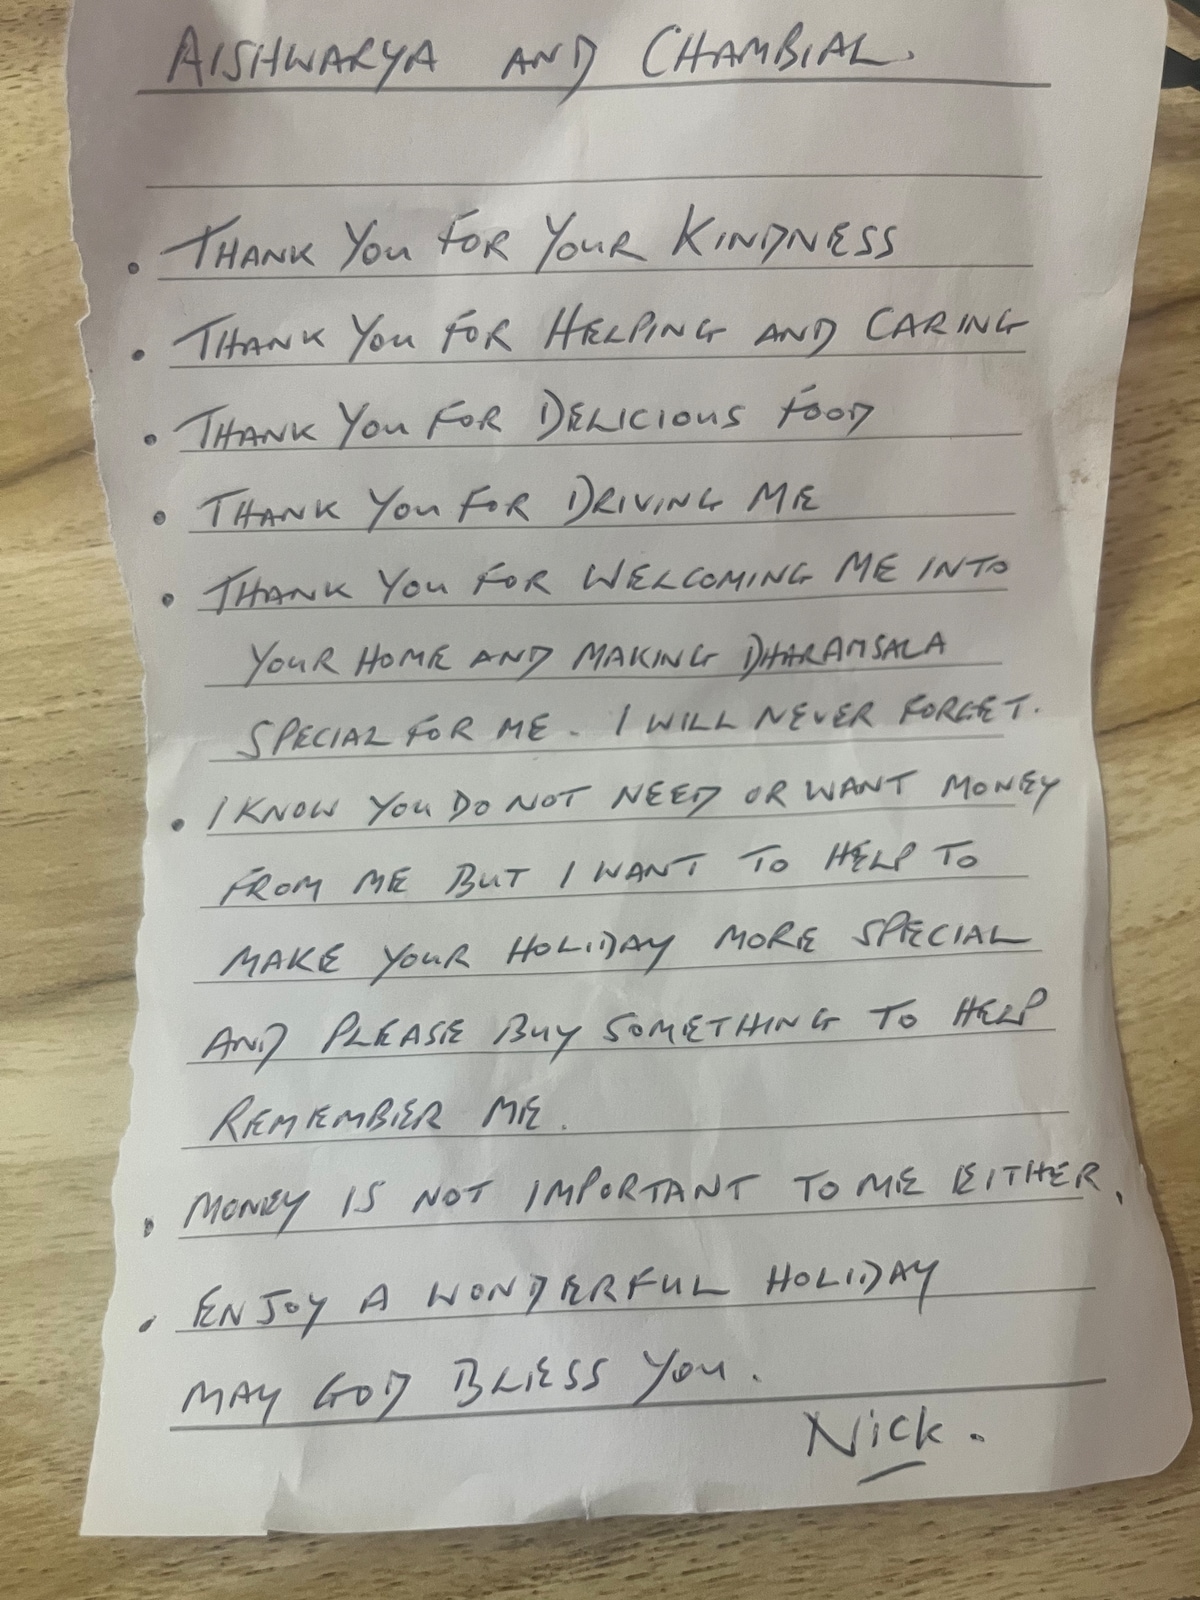 AISHWARYA AND CHAMBIAL.
• THANK YOU FOR YOUR KINDNESS
• THANK YOU FOR HELPING AND CARING
• THANK YOU FOR DELICIOUS FOOD
• THANK YOU FOR DRIVING ME
• THANK YOU FOR WELCOMING ME INTO
YOUR HOME AND MAKING DHARAMSALA
SPECIAL FOR ME. I WILL NEVER FORGET.
• I KNOW YOU DO NOT NEED OR WANT MONEY
FROM ME BUT I WANT TO HELP TO
MAKE YOUR HOLIDAY MORE SPECIAL
AND PLEASE BUY SOMETHING TO HELP
REMEMBER ME.
• MONEY IS NOT IMPORTANT TO ME EITHER.
• ENJOY A WONDERFUL HOLIDAY
MAY GOD BLESS YOU.
NICK.